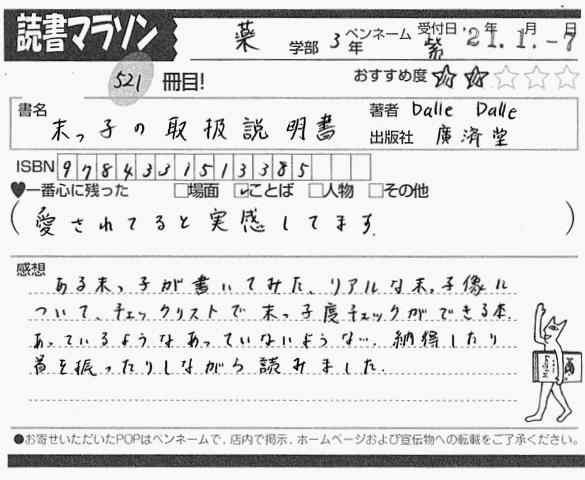 読書マラソン
薬 学部 3年 ペンネーム 紫 受付日 '21年 1月 -7日
521 冊目! おすすめ度 ★★☆☆☆
書名 末っ子の取扱説明書
著者 Dalle Dalle
出版社 廣済堂
ISBN 9784331513385
♥一番心に残った □場面 ☑ことば □人物 □その他
(愛されてると実感してます。)
感想
ある末っ子が書いてみた、リアルな末っ子像に
ついて、チェックリストで末っ子度チェックができる本。
あっているようなあっていないような…。納得したり
首を振ったりしながら読みました。
●お寄せいただいたPOPはペンネームで、店内で掲示、ホームページおよび宣伝物への転載をご了承ください。